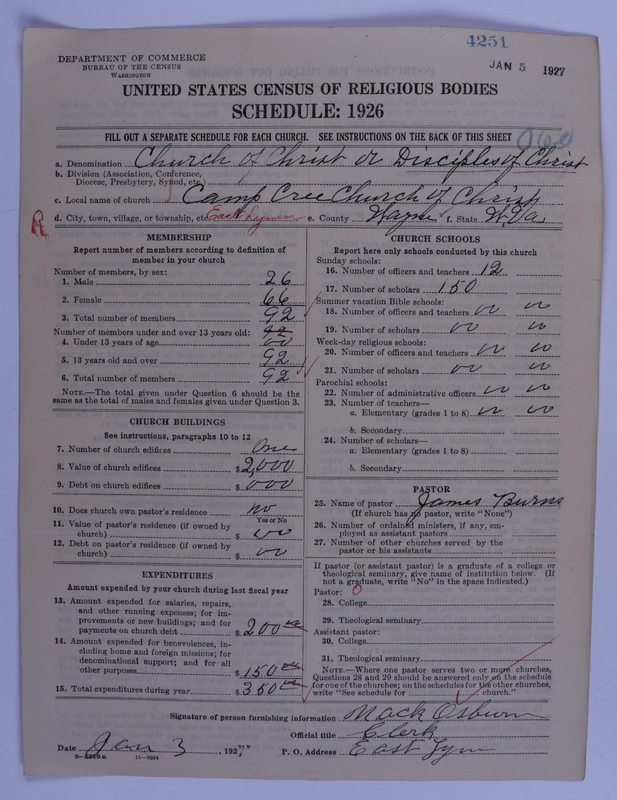 4251
JAN 5 1927
DEPARTMENT OF COMMERCE
BUREAU OF THE CENSUS
WASHINGTON
UNITED STATES CENSUS OF RELIGIOUS BODIES
SCHEDULE: 1926
FILL OUT A SEPARATE SCHEDULE FOR EACH CHURCH. SEE INSTRUCTIONS ON THE BACK OF THIS SHEET
a. Denomination Church of Christ or Disciples of Christ
b. Division (Association, Conference,
Diocese, Presbytery, Synod, etc.)
c. Local name of church Camp Cree Church of Christ
d. City, town, village, or township, etc. East Lynn e. County Wayne f. State W. Va.
R
MEMBERSHIP
Report number of members according to definition of
member in your church
Number of members, by sex:
1. Male 26
2. Female 66
3. Total number of members 92
Number of members under and over 13 years old: 92
4. Under 13 years of age 00
5. 13 years old and over 92
6. Total number of members 92
NOTE.—The total given under Question 6 should be
same as the total of males and females given under Question 3.
CHURCH BUILDINGS
See instructions, paragraphs 10 to 12
7. Number of church edifices One
8. Value of church edifices $ 2,000
9. Debt on church edifices $ 000
10. Does church own pastor's residence no
Yes or No
11. Value of pastor's residence (if owned by
church) $ 00
12. Debt on pastor's residence (if owned by
church) $ 00
EXPENDITURES
Amount expended by your church during last fiscal year
13. Amount expended for salaries, repairs,
and other running expenses; for im-
provements or new buildings; and for
payments on church debt $ 200 00
14. Amount expended for benevolences, in-
cluding home and foreign missions; for
denominational support; and for all
other purposes $ 150 00
15. Total expenditures during year $ 350 00
CHURCH SCHOOLS
Report here only schools conducted by this church
Sunday schools:
16. Number of officers and teachers 12
17. Number of scholars 150
Summer vacation Bible schools:
18. Number of officers and teachers 00 00
19. Number of scholars 00 00
Week-day religious schools:
20. Number of officers and teachers 00 00
21. Number of scholars 00 00
Parochial schools:
22. Number of administrative officers 00 00
23. Number of teachers—
a. Elementary (grades 1 to 8) 00 00
b. Secondary
24. Number of scholars—
a. Elementary (grades 1 to 8)
b. Secondary
PASTOR
25. Name of pastor James Burns
(If church has no pastor, write "None")
26. Number of ordained ministers, if any, em-
ployed as assistant pastors
27. Number of other churches served by the
pastor or his assistants
If pastor (or assistant pastor) is a graduate of a college or
theological seminary, give name of institution below. (If
not a graduate, write "No" in the space indicated.)
Pastor: 0
28. College
29. Theological seminary
Assistant pastor:
30. College
31. Theological seminary
NOTE.—Where one pastor serves two or more churches,
Questions 28 and 29 should be answered only on the schedule
for one of the churches; on the schedules for the other churches,
write "See schedule for church."
Signature of person furnishing information Mack Osburn
Official title Clerk
Date Jan 3, 1927 P. O. Address East Lynn
11—9084